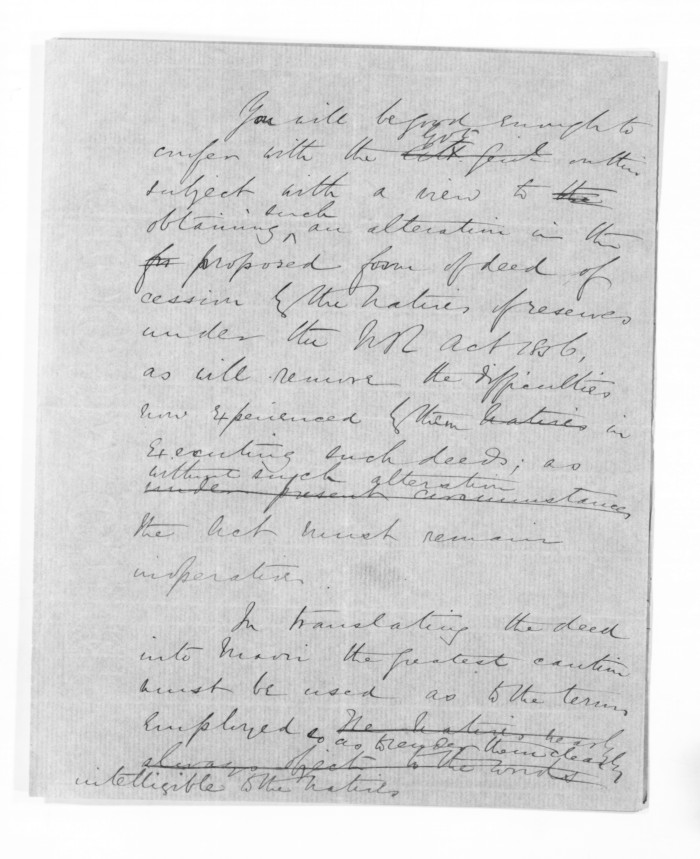 You will be good enough to
Gov.
confer with the Att Genl on this
subject with a view to the
such
obtaining an alteration in the
for proposed form of deed of
cession by the Natives of reserves
under the NR Act 1856,
as will remove the difficulties
now experienced by them Natives in
Executing such deeds; as
without such alteration
under present circumstances
the Act must remain
inoperative.
In translating the deed
into Maori the greatest caution
must be used as to the terms
Employed The Natives nearly
so as to render them clearly
always object to the words
intelligible to the Natives